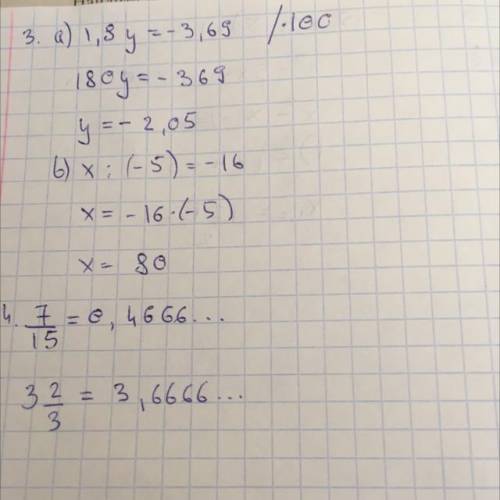 3. a) 1,8 y = - 3,69 /·100
180y = - 369
y = - 2,05
b) x : (-5) = -16
x = - 16·(-5)
x = 80
4. 7/15 = 0,4666...
3 2/3 = 3,6666...